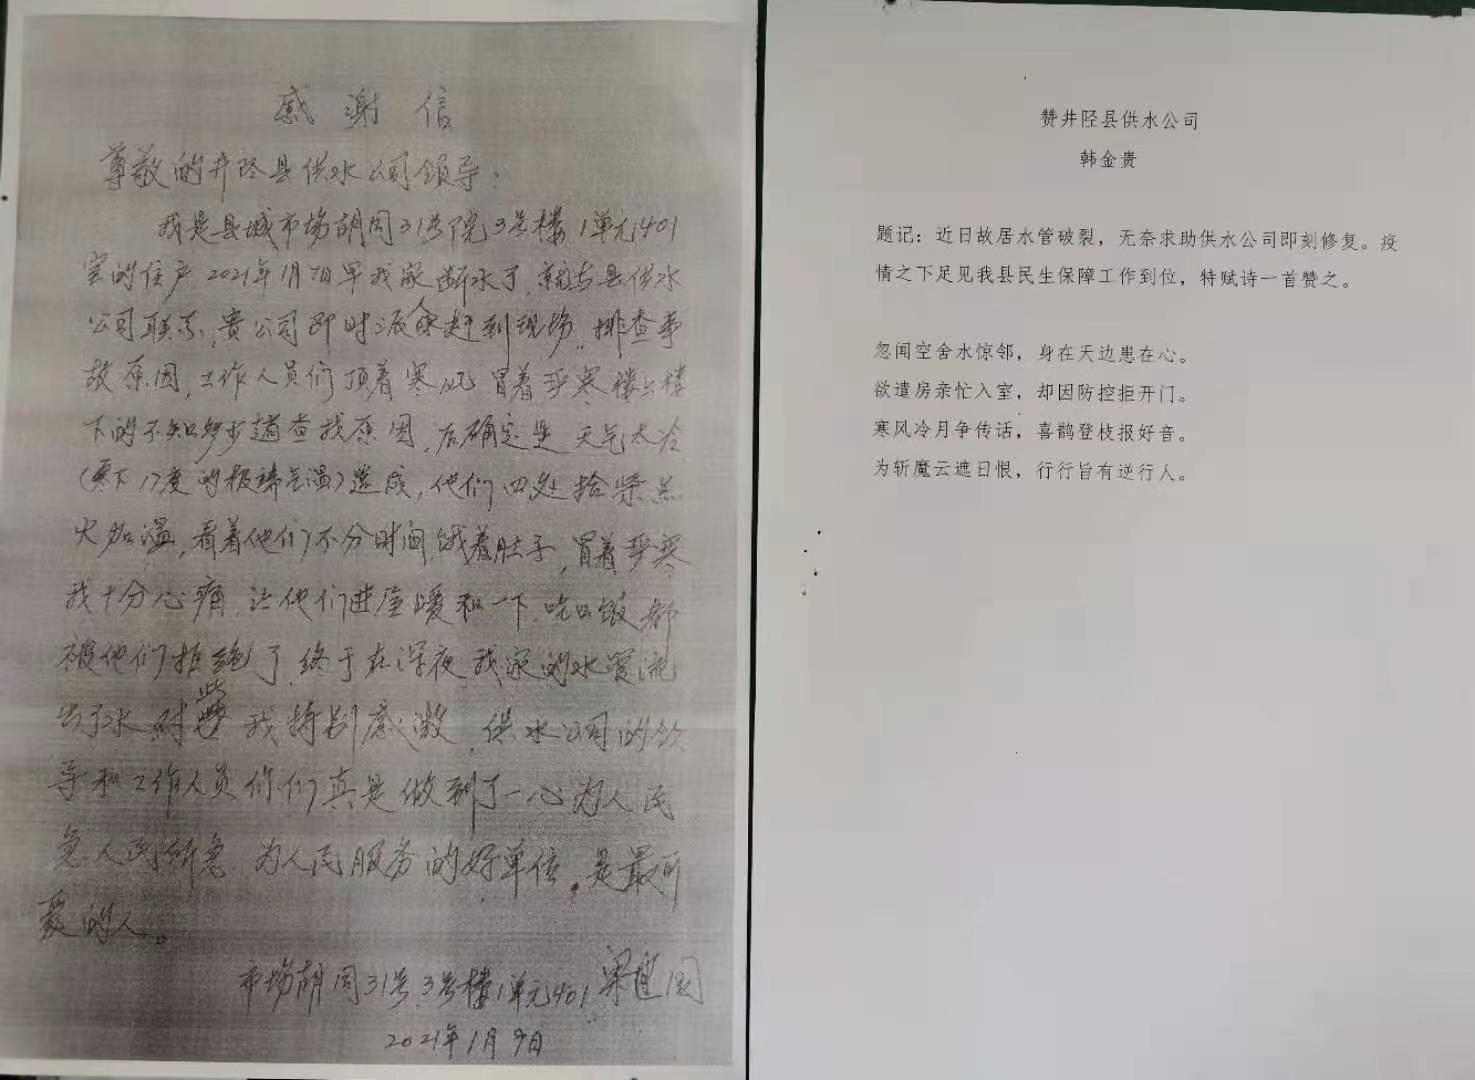 感谢信
尊敬的井陉县供水公司领导:
我是县城市场胡同31号院3号楼1单元401
室的住户2021年1月7日早我家断水了,就与县供水
公司联系,贵公司即时派人赶到现场,排查事
故原因,工作人员们顶着寒风冒着严寒楼上楼
下的不知多少趟查找原因,后确定是天气太冷
(零下17度的极端气温)造成,他们四处拾柴点
火加温,看着他们不分时间饿着肚子,冒着严寒
我十分心痛,让他们进屋暖和一下,吃口饭都
被他们拒绝了,终于在深夜我家的水管流
出了水,对此我特别感激,供水公司的领
导和工作人员你们真是做到了一心为人民
急人民所急,为人民服务的好单位。是最可
爱的人。
市场胡同31号3号楼1单元401
2021年1月9日
赞井陉县供水公司
韩金贵
题记:近日故居水管破裂,无奈求助供水公司即刻修复。疫
情之下足见我县民生保障工作到位,特赋诗一首赞之。
忽闻空舍水惊邻,身在天边患在心。
欲遣房亲忙入室,却因防控拒开门。
寒风冷月争传话,喜鹊登枝报好音。
为斩魔云遮日恨,行行旨有逆行人。